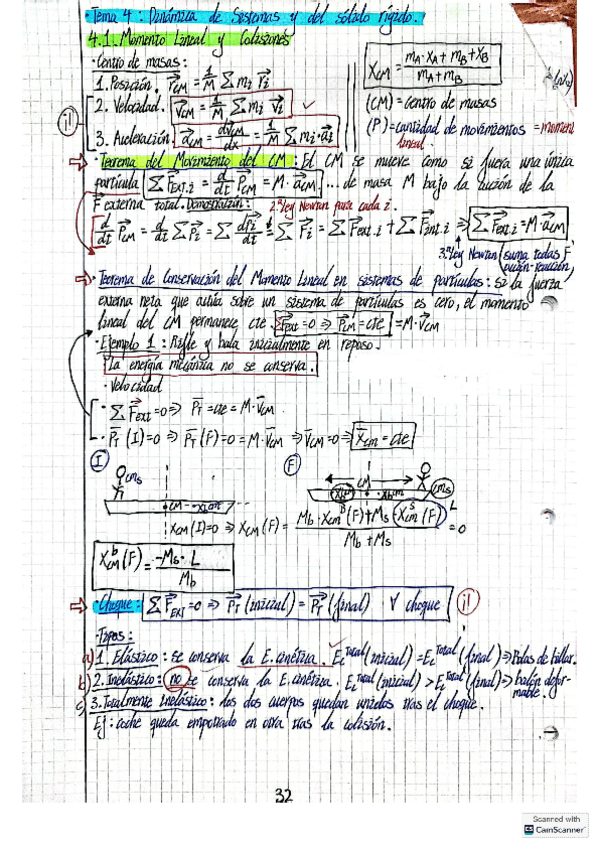 · Tema 4: Dinámica de Sistemas y del sólido rígido.
4.1. Momento Lineal y Colisiones
· Centro de masas:
1. Posición. r⃗CM = 1/M Σ mi r⃗i
2. Velocidad. v⃗CM = 1/M Σ mi v⃗i ✓
3. Aceleración. a⃗CM = dv⃗CM/dx = 1/M Σ mi · a⃗i
¡!
XCM = (mA · XA + mB + XB)/(mA + mB)
(CM) = Centro de masas
(P) = cantidad de movimientos = moment
lineal.
⇒ · Teorema del Movimiento del CM: El CM se mueve como si fuera una única
partícula ΣF⃗EXT.i = d/dt P⃗CM = M · a⃗CM ... de masa M bajo la acción de la
F⃗ externa total. Demostración: 2ª ley Newton para cada i.
d/dt P⃗CM = d/dt ΣP⃗i = Σ dP⃗i/dt = ΣF⃗i = ΣF⃗ext.i + ΣF⃗int.i ⇒ ΣF⃗ext.i = M·a⃗CM
3ª ley Newton (suma todas F
acción-reacción)
⇒ · Teorema de Conservación del Momento Lineal en sistemas de partículas: si la fuerza
externa neta que actúa sobre un sistema de partículas es cero, el momento
lineal del CM permanece cte. ΣF⃗ext = 0 ⇒ P⃗CM = cte = M·v⃗CM
· Ejemplo 1: Rifle y bala inicialmente en reposo.
La energía mecánica no se conserva.
· Velocidad
· ΣF⃗EXT = 0 ⇒ P⃗T = cte = M·v⃗CM.
· P⃗T (I) = 0 ⇒ P⃗T (F) = 0 = M·v⃗CM ⇒ v⃗CM = 0 ⇒ x⃗CM = cte
I
F
CMs
CM
CM
CMs
L
XCM(I) = 0 ⇒ XCM(F) = (Mb · XCM^B(F) + Ms · XCM^S(F))/(Mb + Ms) = 0
XCM^b(F) = -Ms · L/Mb
⇒ · Choque: ΣF⃗EXT = 0 ⇒ P⃗T (inicial) = P⃗T (final) ∀ choque ¡!
· Tipos:
a) 1. Elástico: se conserva la E. cinética. Ec^Total (inicial) = Ec^Total (final) ⇒ Bolas de billar.
b) 2. Inelástico: no se conserva la E. cinética. Ec^Total (inicial) > Ec^Total (final) ⇒ balón defor-
mable.
c) 3. Totalmente Inelástico: dos dos cuerpos quedan unidos tras el choque.
Ej: coche queda empotrado en otro tras la colisión.
32
Scanned with
CS CamScanner